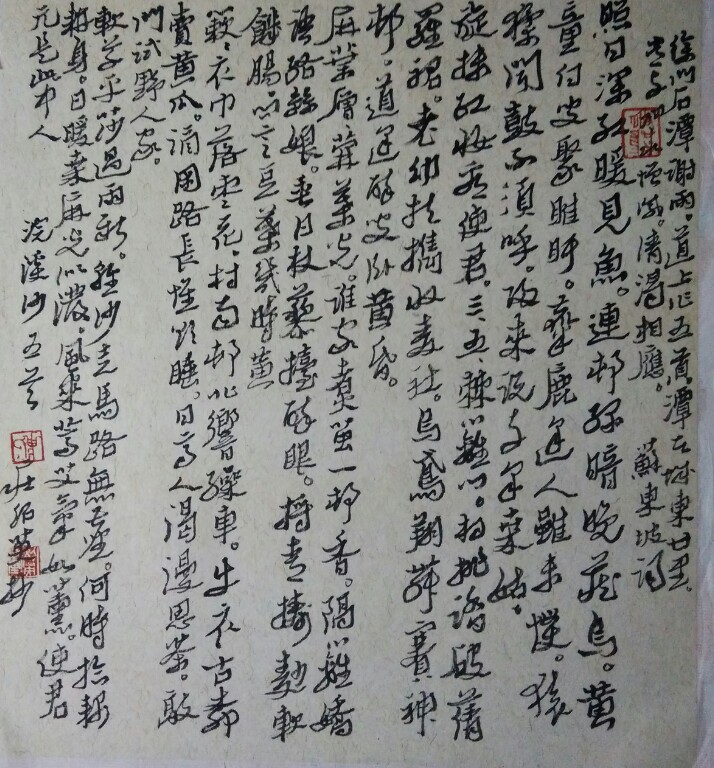 徐州石潭謝雨。道上作五首。潭在城東廿里。
常与泗水增減。清濁相應。 蘇東坡詞
照日深紅暖見魚。連邨綠暗晚藏烏。黄
童白叟聚睢盱。麋鹿逢人雖未慣。猿
猱聞鼓不須呼。歸來說与采桑姑。
旋抹紅妝看使君。三三五五棘籬門。相挨踏破蒨
羅裙。老幼扶攜收麥社。烏鳶翔舞賽神
邨。道逢醉叟卧黄昏。
麻葉層層檾葉光。誰家煮繭一邨香。隔籬嬌
語絡絲娘。垂白杖藜擡醉眼。捋青擣麨軟
飢腸。问言豆葉幾時黄
簌簌衣巾落枣花。村南邨北響繰車。牛衣古柳
賣黄瓜。酒困路長惟欲睡。日高人渴漫思茶。敲
門試野人家。
軟草平莎過雨新。輕沙走馬路無塵。何時拾耦
耕身。日暖桑麻光似潑。風來蒿艾氣如薰。使君
元是此中人
浣溪沙五首